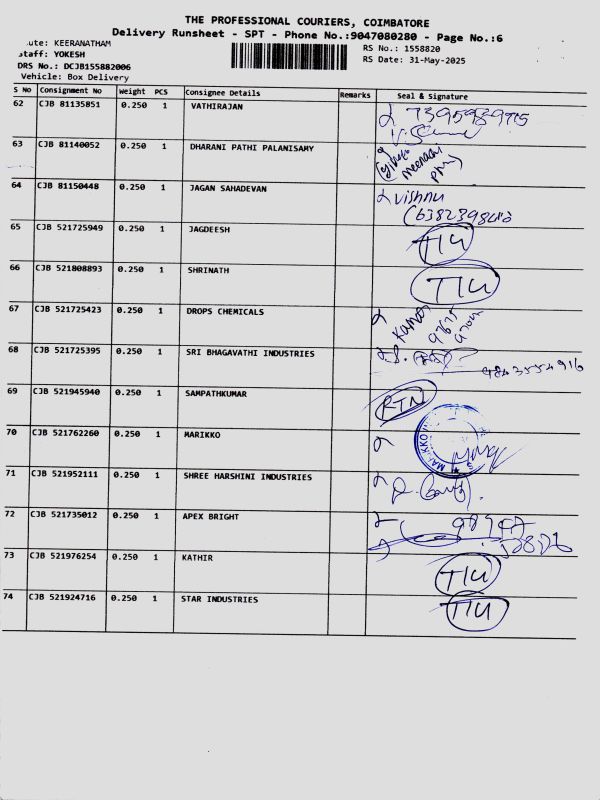 THE PROFESSIONAL COURIERS, COIMBATORE
Delivery Runsheet - SPT - Phone No.:9047080280 - Page No.:6
ute: KEERANATHAM
RS No.: 1558820
Staff: YOKESH
RS Date: 31-May-2025
DRS No.: DCJB155882006
Vehicle: Box Delivery
S No Consignment No Weight PCS Consignee Details Remarks Seal & Signature
62 CJB 81135851 0.250 1 VATHIRAJAN
63 CJB 81140052 0.250 1 DHARANI PATHI PALANISAMY
64 CJB 81150448 0.250 1 JAGAN SAHADEVAN Vishnu
65 CJB 521725949 0.250 1 JAGDEESH
66 CJB 521808893 0.250 1 SHRINATH
67 CJB 521725423 0.250 1 DROPS CHEMICALS
68 CJB 521725395 0.250 1 SRI BHAGAVATHI INDUSTRIES 9843554916
69 CJB 521945940 0.250 1 SAMPATHKUMAR RTN
70 CJB 521762260 0.250 1 MARIKKO
71 CJB 521952111 0.250 1 SHREE HARSHINI INDUSTRIES
72 CJB 521735012 0.250 1 APEX BRIGHT
73 CJB 521976254 0.250 1 KATHIR
74 CJB 521924716 0.250 1 STAR INDUSTRIES